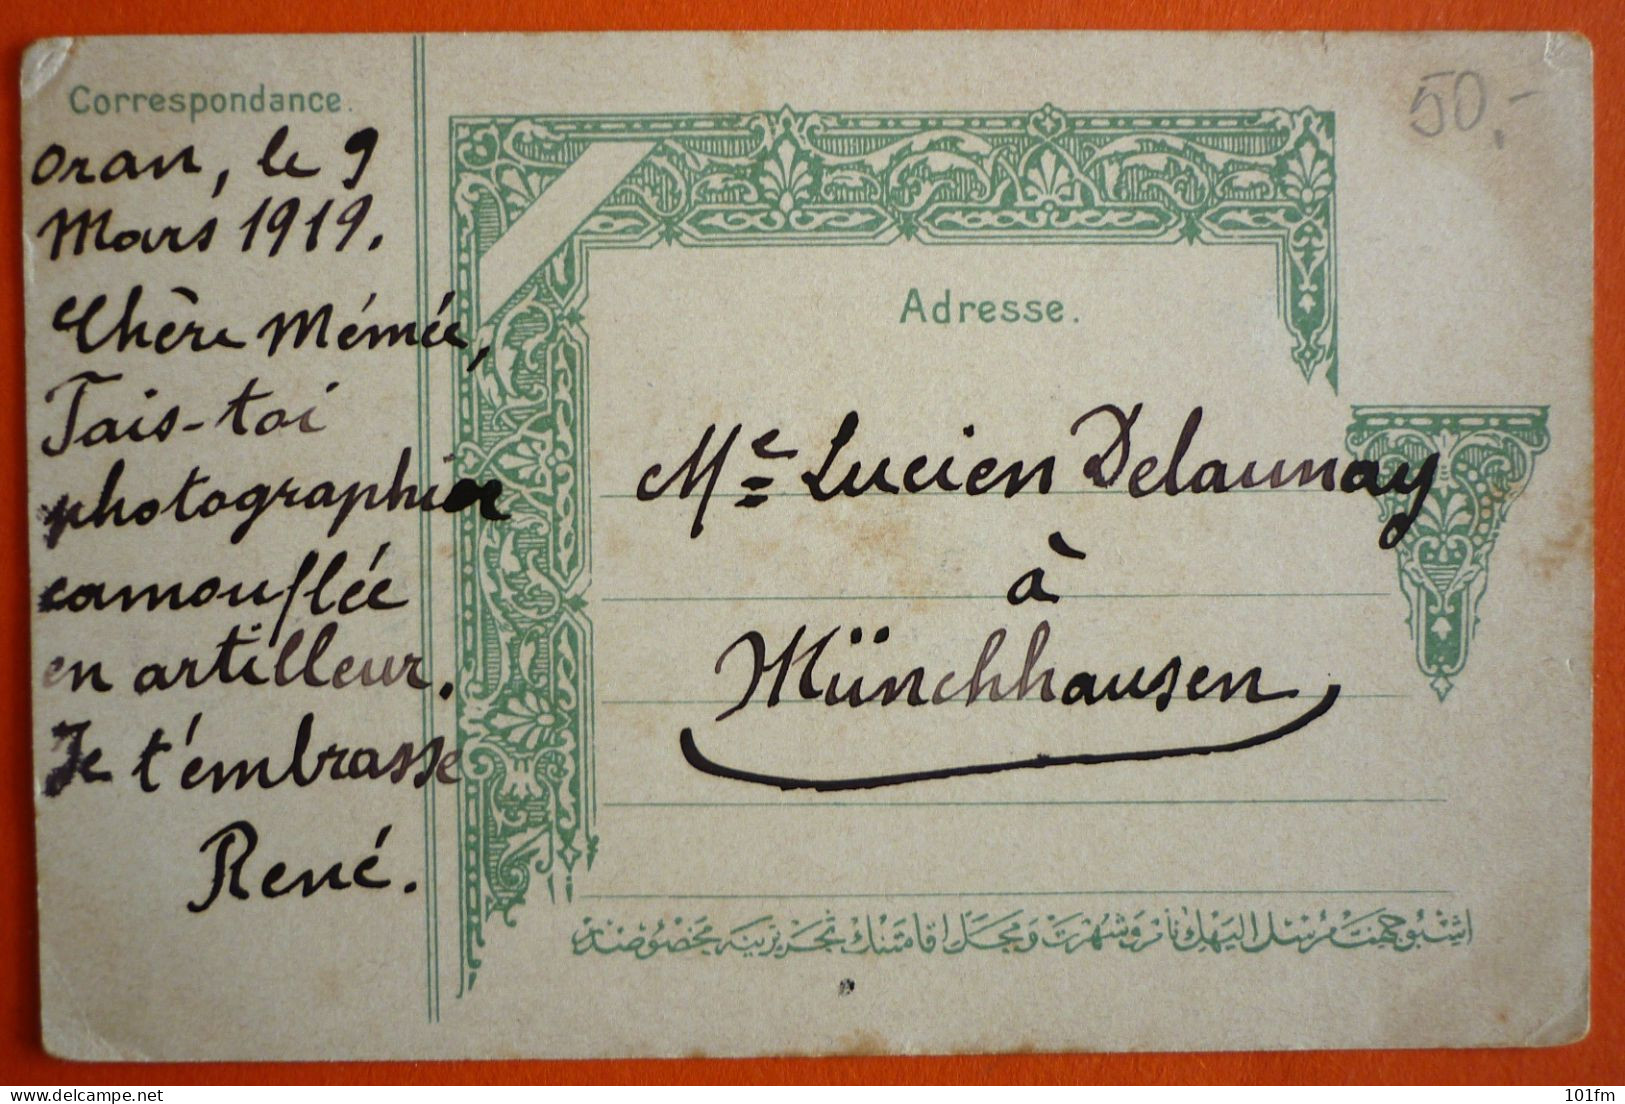 Correspondance.
Oran, le 9
Mars 1919.
Chère Mémée,
Tais-toi
photographiée
camouflée
en artilleur.
Je t'embrasse
René.
50,-
Adresse.
Mᶜ Lucien Delaunay
à
Münchhausen
101fm